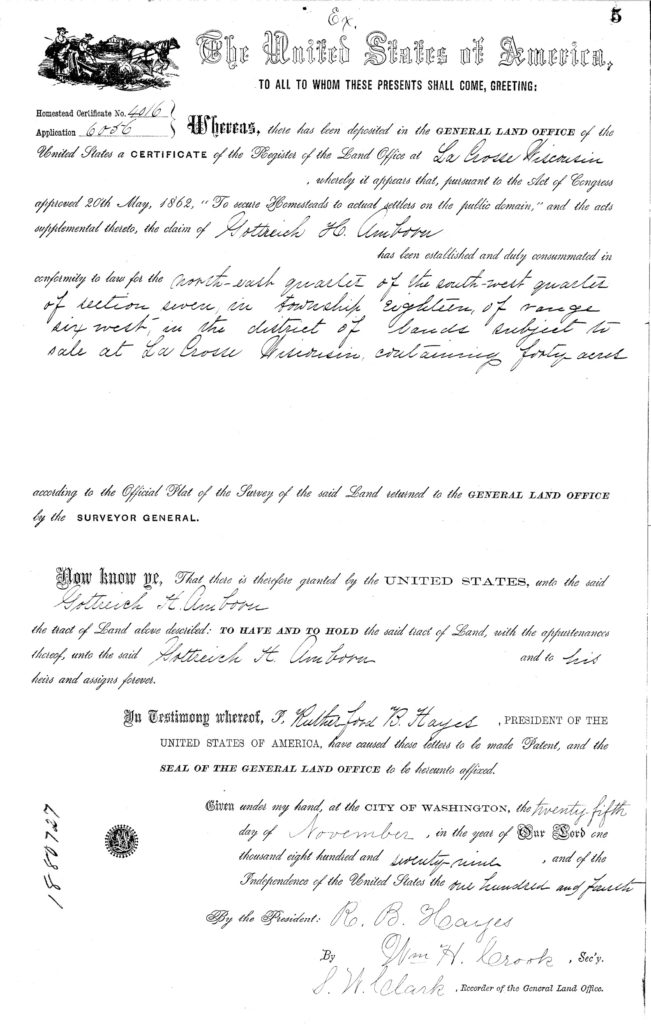 Ex.
5
The United States of America,
TO ALL TO WHOM THESE PRESENTS SHALL COME, GREETING:
Homestead Certificate No. 4016
Application 6056
Whereas, there has been deposited in the GENERAL LAND OFFICE of the
United States a CERTIFICATE of the Register of the Land Office at La Crosse Wisconsin
, whereby it appears that, pursuant to the Act of Congress
approved 20th May, 1862, "To secure Homesteads to actual settlers on the public domain," and the acts
supplemental thereto, the claim of Gottreich H. Amboon
has been established and duly consummated in
conformity to law for the north-east quarter of the south-west quarter
of section seven, in township eighteen, of range
six west, in the district of lands subject to
sale at La Crosse Wisconsin, containing forty acres
according to the Official Plat of the Survey of the said Land returned to the GENERAL LAND OFFICE
by the SURVEYOR GENERAL.
Now know ye, That there is therefore granted by the UNITED STATES, unto the said
Gottreich H. Amboon
the tract of Land above described: TO HAVE AND TO HOLD the said tract of Land, with the appurtenances
thereof, unto the said Gottreich H. Amboon and to his
heirs and assigns forever.
In Testimony whereof, I, Rutherford B. Hayes, PRESIDENT OF THE
UNITED STATES OF AMERICA, have caused these letters to be made Patent, and the
SEAL OF THE GENERAL LAND OFFICE to be hereunto affixed.
Given under my hand, at the CITY OF WASHINGTON, the twenty fifth
day of November, in the year of Our Lord one
thousand eight hundred and seventy-nine, and of the
Independence of the United States the one hundred and fourth
By the President: R. B. Hayes
By Wm H. Crook, Sec'y.
S. W. Clark, Recorder of the General Land Office.
1880727